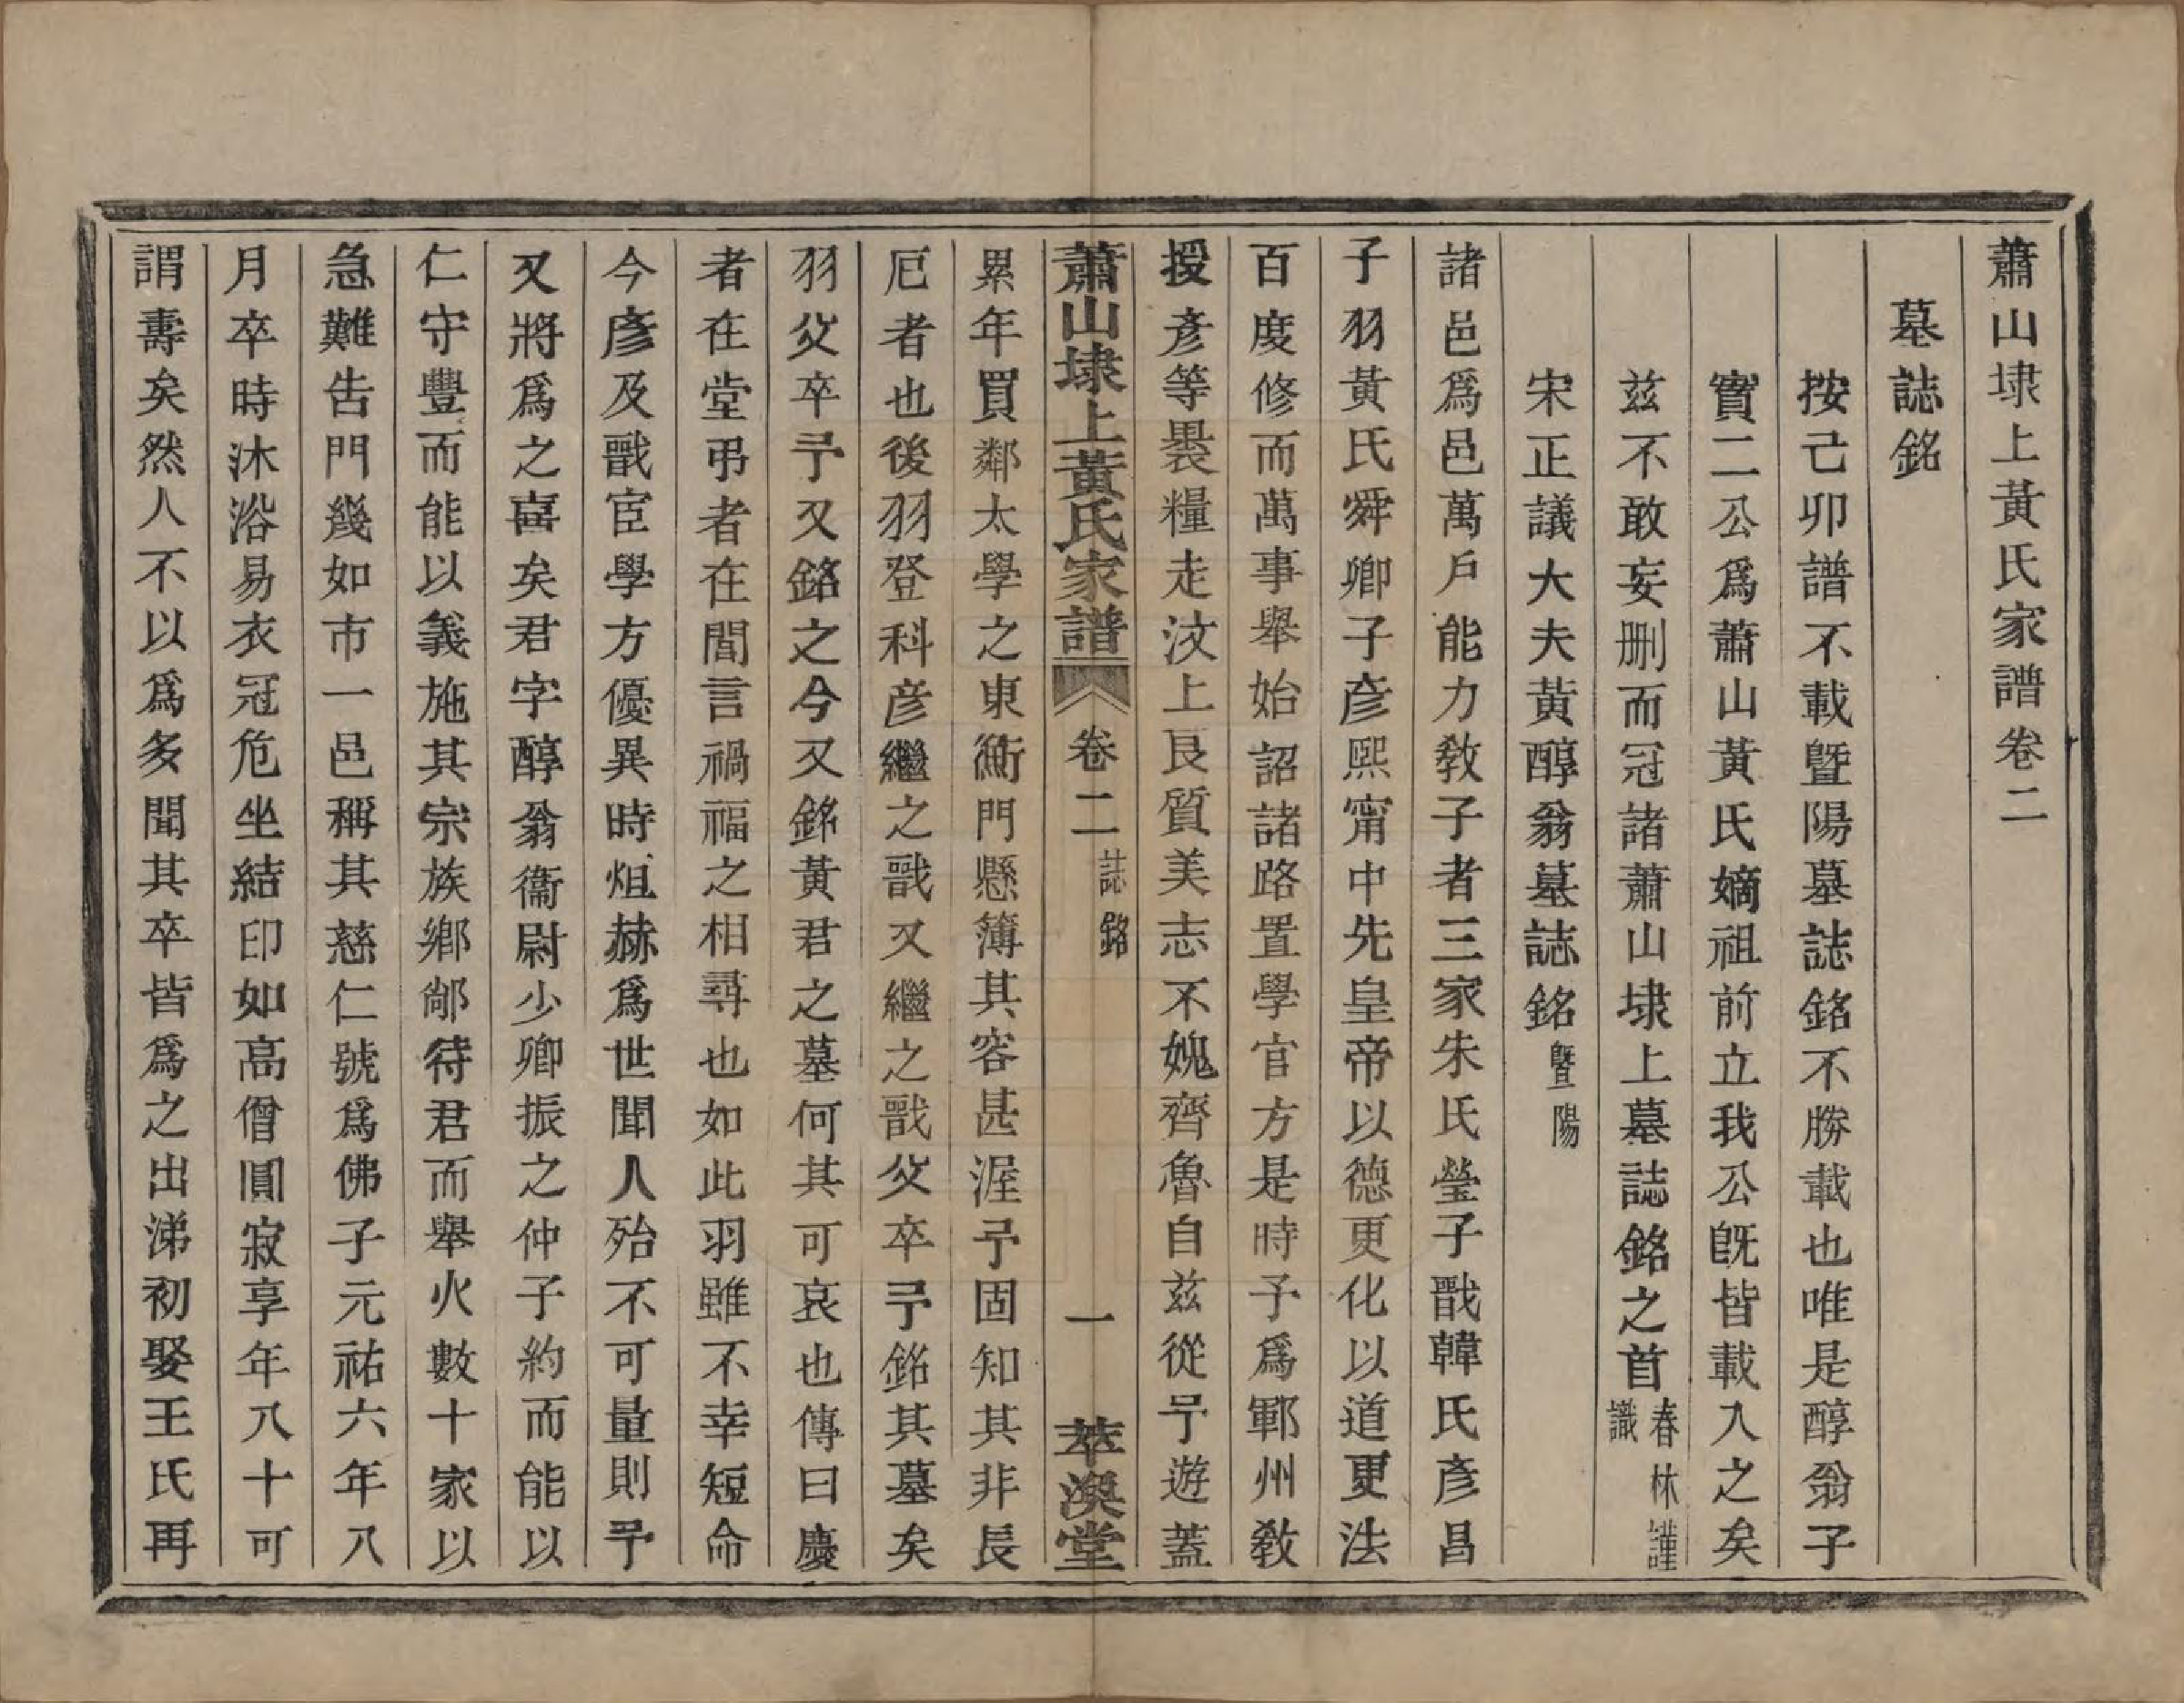 蕭山埭上黃氏家譜卷二
墓誌銘
按己卯譜不載暨陽墓誌銘不勝載也唯是醇翁子
實二公爲蕭山黃氏嫡祖前立我公旣皆載入之矣
茲不敢妄刪而冠諸蕭山埭上墓誌銘之首春林謹識
宋正議大夫黃醇翁墓誌銘暨陽
諸邑爲邑萬戶能力敎子者三家朱氏瑩子戩韓氏彥昌
子羽黃氏舜卿子彥熙甯中先皇帝以德更化以道更法
百度修而萬事舉始詔諸路置學官方是時予爲鄆州敎
授彥等褁糧走汶上良質美志不媿齊魯自茲從予遊蓋
累年買鄰太學之東衡門懸簿其容甚渥予固知其非長
厄者也後羽登科彥繼之戩又繼之戩父卒予銘其墓矣
羽父卒予又銘之今又銘黃君之墓何其可哀也傳曰慶
者在堂弔者在閭言禍福之相尋也如此羽雖不幸短命
今彥及戩宦學方優異時烜赫爲世聞人殆不可量則予
又將爲之喜矣君字醇翁衞尉少卿振之仲子約而能以
仁守豐而能以義施其宗族鄉鄰待君而舉火數十家以
急難告門幾如市一邑稱其慈仁號爲佛子元祐六年八
月卒時沐浴易衣冠危坐結印如高僧圓寂享年八十可
謂壽矣然人不以爲多聞其卒皆爲之出涕初娶王氏再
蕭山埭上黃氏家譜 卷二 誌銘 一 萃渙堂